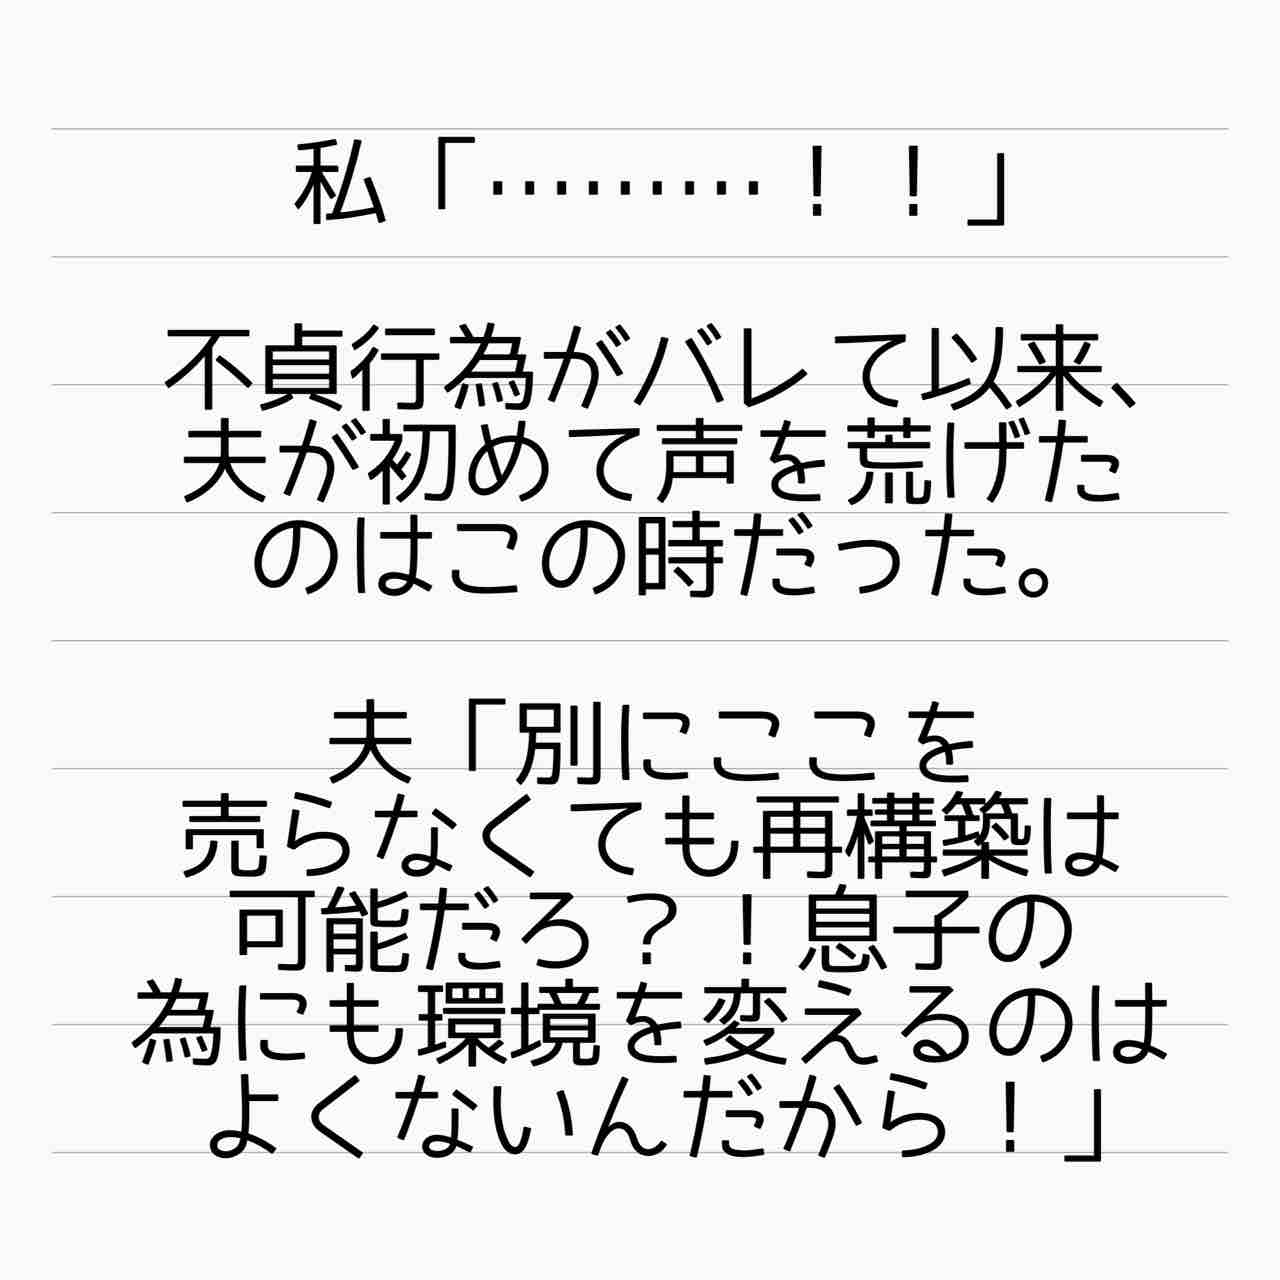 私「………！！」
不貞行為がバレて以来、
夫が初めて声を荒げた
のはこの時だった。
夫「別にここを
売らなくても再構築は
可能だろ？！息子の
為にも環境を変えるのは
よくないんだから！」